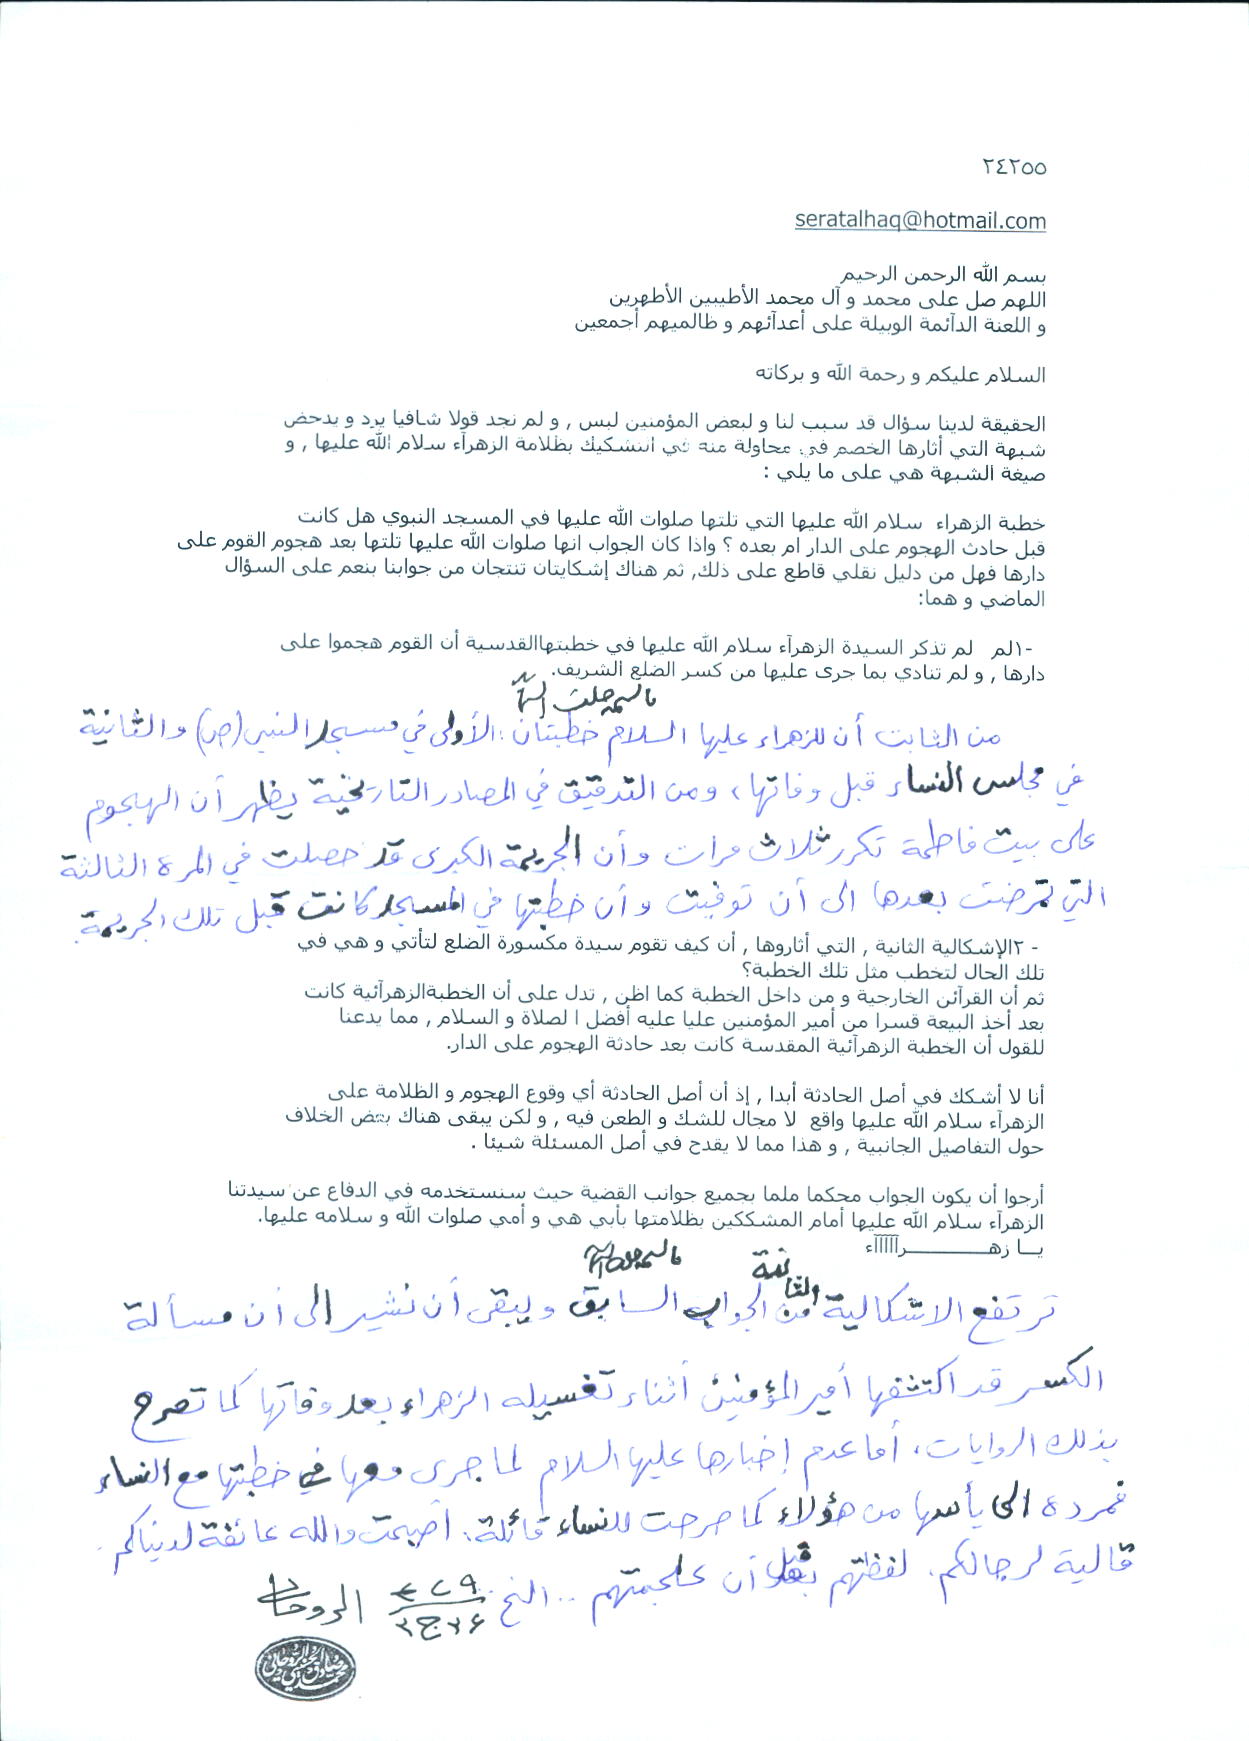 ٢٤٢٥٥
seratalhaq@hotmail.com
بسم الله الرحمن الرحيم
اللهم صل على محمد و آل محمد الأطيبين الأطهرين
و اللعنة الدآئمة الوبيلة على أعدآئهم و ظالميهم أجمعين
السلام عليكم و رحمة الله و بركاته
الحقيقة لدينا سؤال قد سبب لنا و لبعض المؤمنين لبس , و لم نجد قولا شافيا يرد و يدحض
شبهة التي أثارها الخصم في محاولة منه في التشكيك بظلامة الزهرآء سلام الله عليها , و
صيغة الشبهة هي على ما يلي :
خطبة الزهراء سلام الله عليها التي تلتها صلوات الله عليها في المسجد النبوي هل كانت
قبل حادث الهجوم على الدار ام بعده ؟ واذا كان الجواب انها صلوات الله عليها تلتها بعد هجوم القوم على
دارها فهل من دليل نقلي قاطع على ذلك, ثم هناك إشكايتان تنتجان من جوابنا بنعم على السؤال
الماضي و هما:
-١لم لم تذكر السيدة الزهرآء سلام الله عليها في خطبتهاالقدسية أن القوم هجموا على
دارها , و لم تنادي بما جرى عليها من كسر الضلع الشريف.
باسمه جلت اسمائه
من الثابت أن للزهراء عليها السلام خطبتان : الأولى في مسجد النبي (ص) والثانية
في مجلس النساء قبل وفاتها ، ومن التدقيق في المصادر التاريخية يظهر أن الهجوم
على بيت فاطمة تكرر ثلاث مرات وأن الجريمة الكبرى قد حصلت في المرة الثالثة
التي تمرضت بعدها الى أن توفيت وأن خطبتها في المسجد كانت قبل تلك الجريمة.
- ٢الإشكالية الثانية , التي أثاروها , أن كيف تقوم سيدة مكسورة الضلع لتأتي و هي في
تلك الحال لتخطب مثل تلك الخطبة؟
ثم أن القرآئن الخارجية و من داخل الخطبة كما اظن , تدل على أن الخطبةالزهرآئية كانت
بعد أخذ البيعة قسرا من أمير المؤمنين عليا عليه أفضل ا لصلاة و السلام , مما يدعنا
للقول أن الخطبة الزهرآئية المقدسة كانت بعد حادثة الهجوم على الدار.
أنا لا أشكك في أصل الحادثة أبدا , إذ أن أصل الحادثة أي وقوع الهجوم و الظلامة على
الزهرآء سلام الله عليها واقع لا مجال للشك و الطعن فيه , و لكن يبقى هناك بعض الخلاف
حول التفاصيل الجانبية , و هذا مما لا يقدح في أصل المسئلة شيئا .
أرجوا أن يكون الجواب محكما ملما بجميع جوانب القضية حيث سنستخدمه في الدفاع عن سيدتنا
الزهرآء سلام الله عليها أمام المشككين بظلامتها بأبي هي و أمي صلوات الله و سلامه عليها.
يـــا زهـــــــــــــرآآآآآء
باسمه جلت اسمائه
ترتفع الاشكالية الثانية من الجواب السابق ويبقى أن نشير الى أن مسألة
الكسر قد اكتشفها أمير المؤمنين أثناء تغسيله الزهراء بعد وفاتها كما تصرح
بذلك الروايات ، أما عدم إخبارها عليها السلام لما جرى معها في خطبتها مع النساء
فمرده الى يأسها من هؤلاء كما صرحت للنساء قائلة : أصبحت والله عائفة لدنياكم .
قالية لرجالكم. لفظتهم قبل أن عجمتهم .. الخ الروحاني
محمد صادق الحسيني الروحاني